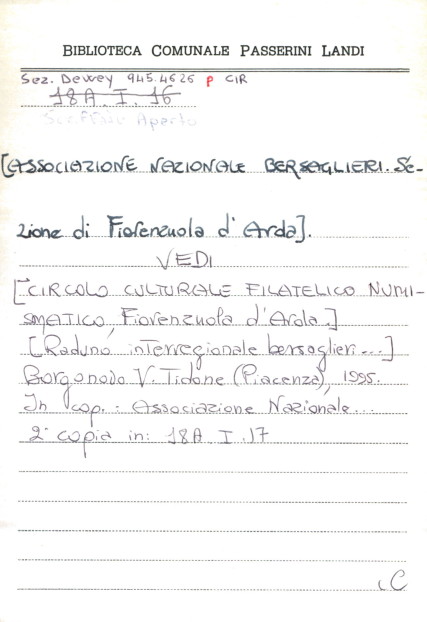 BIBLIOTECA COMUNALE PASSERINI LANDI
Sez. Dewey 945.4626 p CIR
18A. I. 16
Scaffale Aperto
[ASSOCIAZIONE NAZIONALE BERSAGLIERI. Se-
zione di Fiorenzuola d'Arda].
VEDI
[CIRCOLO CULTURALE FILATELICO NUMI-
SMATICO, Fiorenzuola d'Arda.]
[Raduno interregionale bersaglieri...]
Borgonovo V. Tidone (Piacenza), 1995.
In cop.: Associazione Nazionale...
2ª copia in: 18A I. 17